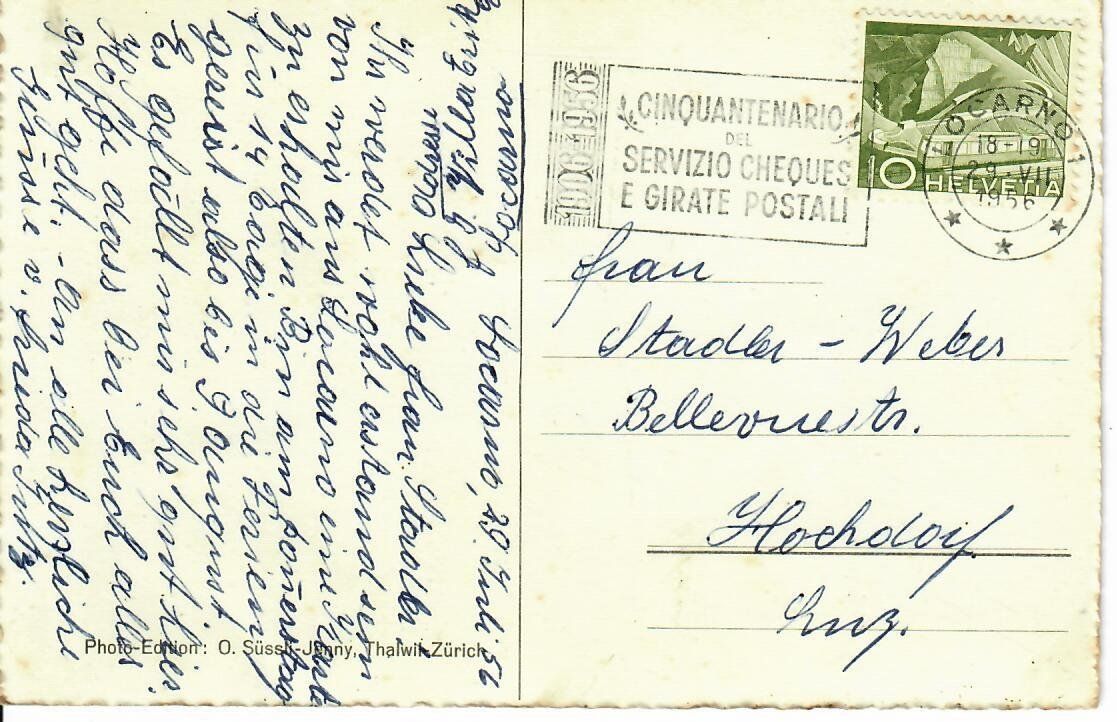 Locarno, 29. Juli 56
Liebe Frau Stadler
Ihr werdet wohl erstaund sein
von mir aus Locarno eine Karte
zu erhalten. Bin am Donerstag
für 14 Tage in die Ferien
gereist also bis 9 August
Es gefällt mir sehr gut hier.
Hoffe dass bei Euch alles
gut geht. - An alle herzliche
Grüsse v. Frieda
Adresse
Locarno
CINQUANTENARIO
DEL
SERVIZIO CHEQUES
E GIRATE POSTALI
1906 1956
LOCARNO 1
18-19
29.-VII
1956
10 HELVETIA
Frau
Stadler - Weber
Bellevuestr.
Hochdorf
Luz.
Photo-Edition: O. Süssli-Jenny, Thalwil-Zürich